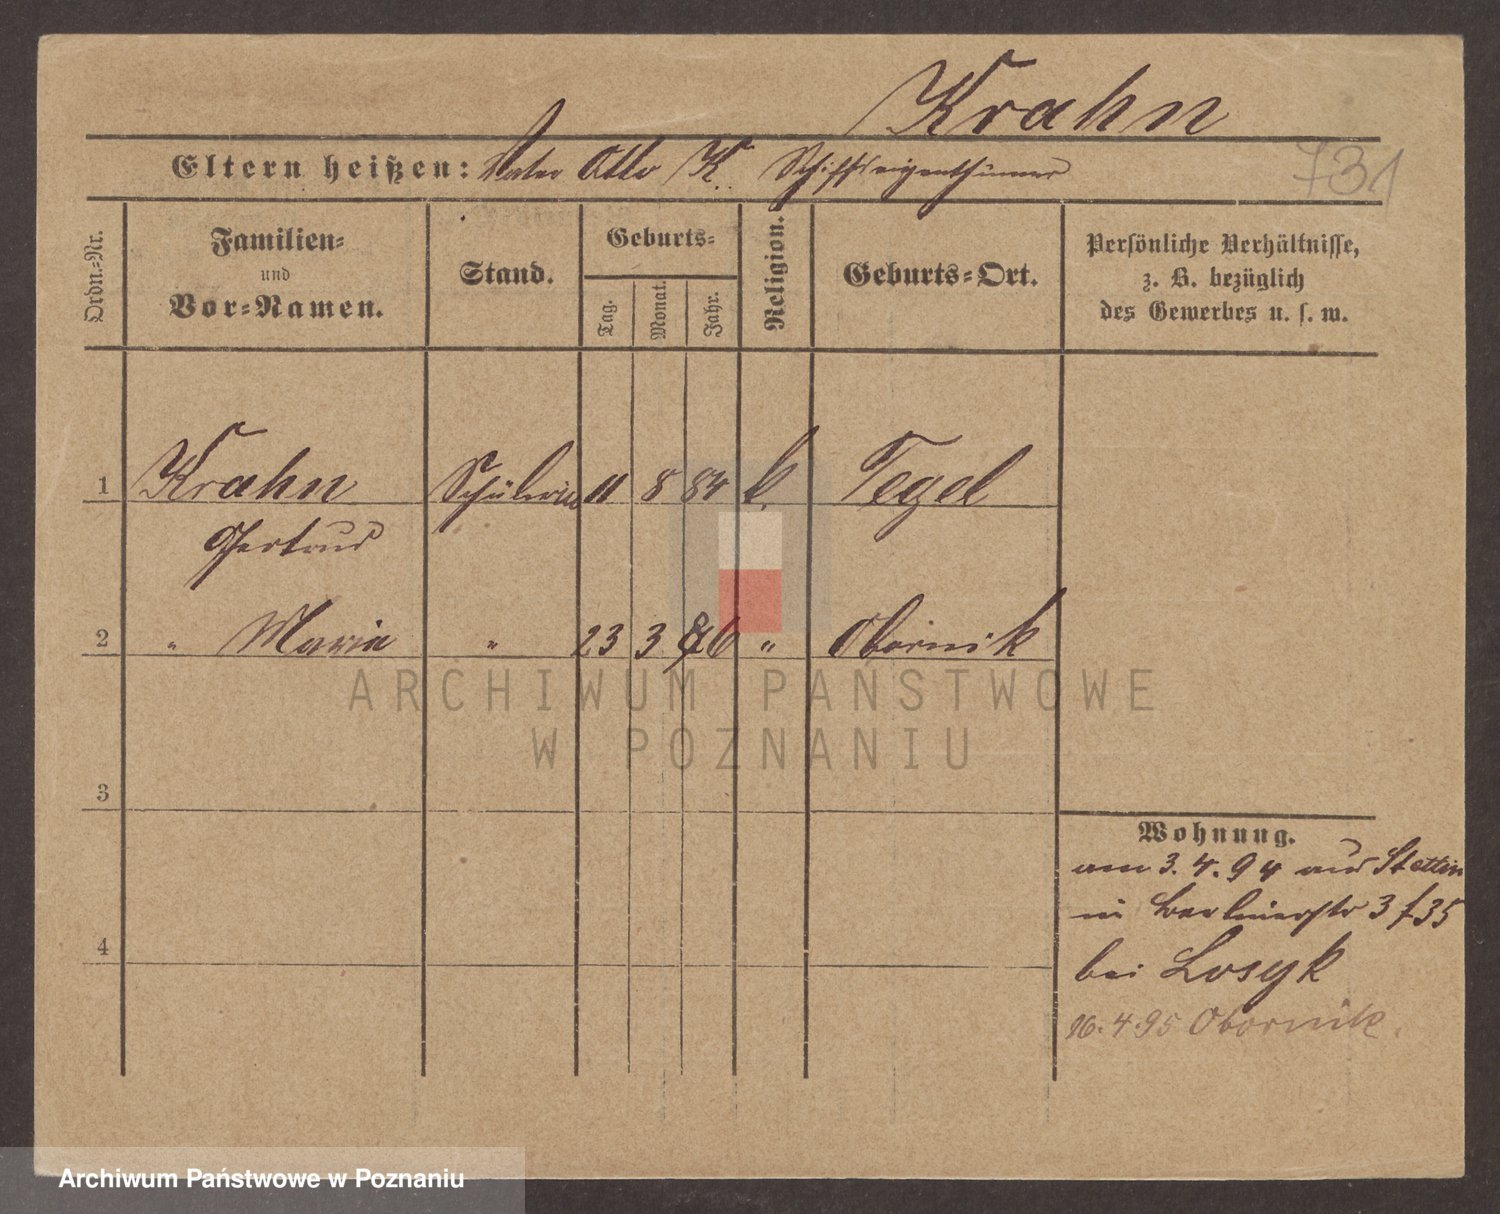 Krahn
Eltern heißen: Vater Otto K. Schiffseigenthümer
731
Ordn.-Nr.
Familien-
und
Vor-Namen.
Stand.
Geburts-
Tag.
Monat.
Jahr.
Religion.
Geburts-Ort.
Persönliche Verhältnisse,
z. B. bezüglich
des Gewerbes u. s. w.
1 Krahn Schülerin 11 8 84 k. Tegel
Gertrud
2 " Maria " 23 3 86 " Obornik
ARCHIWUM PAŃSTWOWE
W POZNANIU
3
Wohnung.
am 3. 4. 94 aus Stettin
in Berlinerstr 3 f 35
4
bei Losyk
16. 4 95 Obornik.
Archiwum Państwowe w Poznaniu